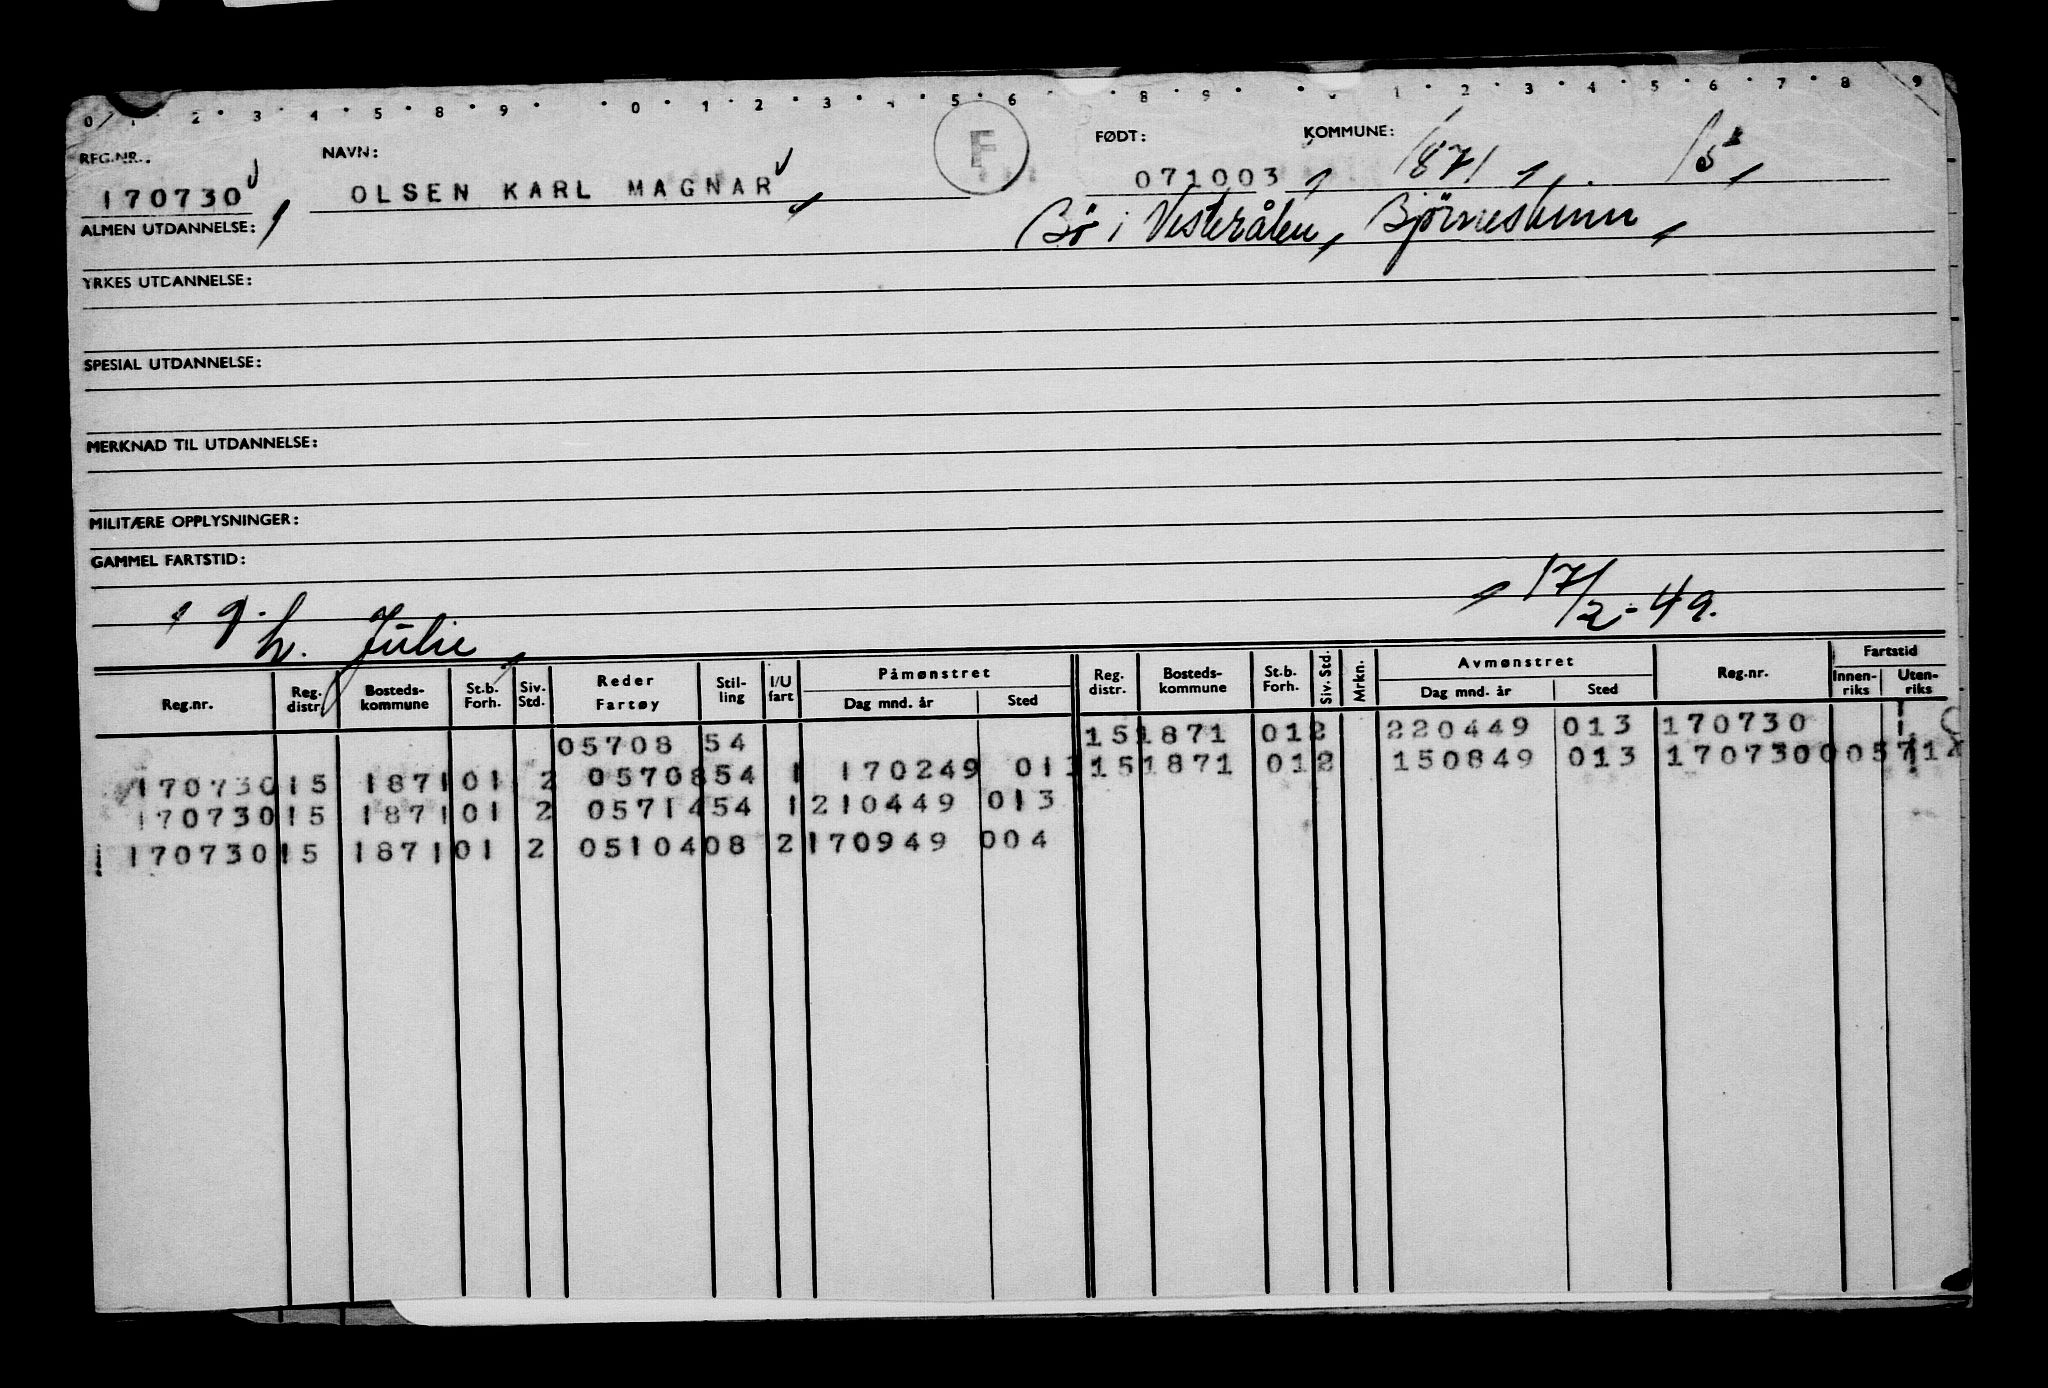 0 1 2 3 4 5 8 9 0 1 2 3 4 5 6 8 9 1 2 3 4 5 6 7 8 9
REG.NR.: NAVN: F FØDT: KOMMUNE:
170730 OLSEN KARL MAGNAR 071003 1871 15
ALMEN UTDANNELSE: Bø i Vesterålen,
YRKES UTDANNELSE:
SPESIAL UTDANNELSE:
MERKNAD TIL UTDANNELSE:
MILITÆRE OPPLYSNINGER:
GAMMEL FARTSTID:
17/2-49.
Julie
Reg.nr. Reg. distr. Bosteds-kommune St.b. Forh. Siv. Std. Reder Fartøy Stil-ling I/U fart Påmønstret Dag mnd. år Sted Reg. distr. Bosteds-kommune St.b. Forh. Siv. Std. Mrkn. Avmønstret Dag mnd. år Sted Reg.nr. Fartstid Innen-riks Uten-riks
05708 54 15 1871 01 2 220449 013 170730
170730 15 1871 01 2 05708 54 1 170249 013 15 1871 01 2 150849 013 170730
170730 15 1871 01 2 05714 54 1 210449 013
170730 15 1871 01 2 05104 08 2 170949 004